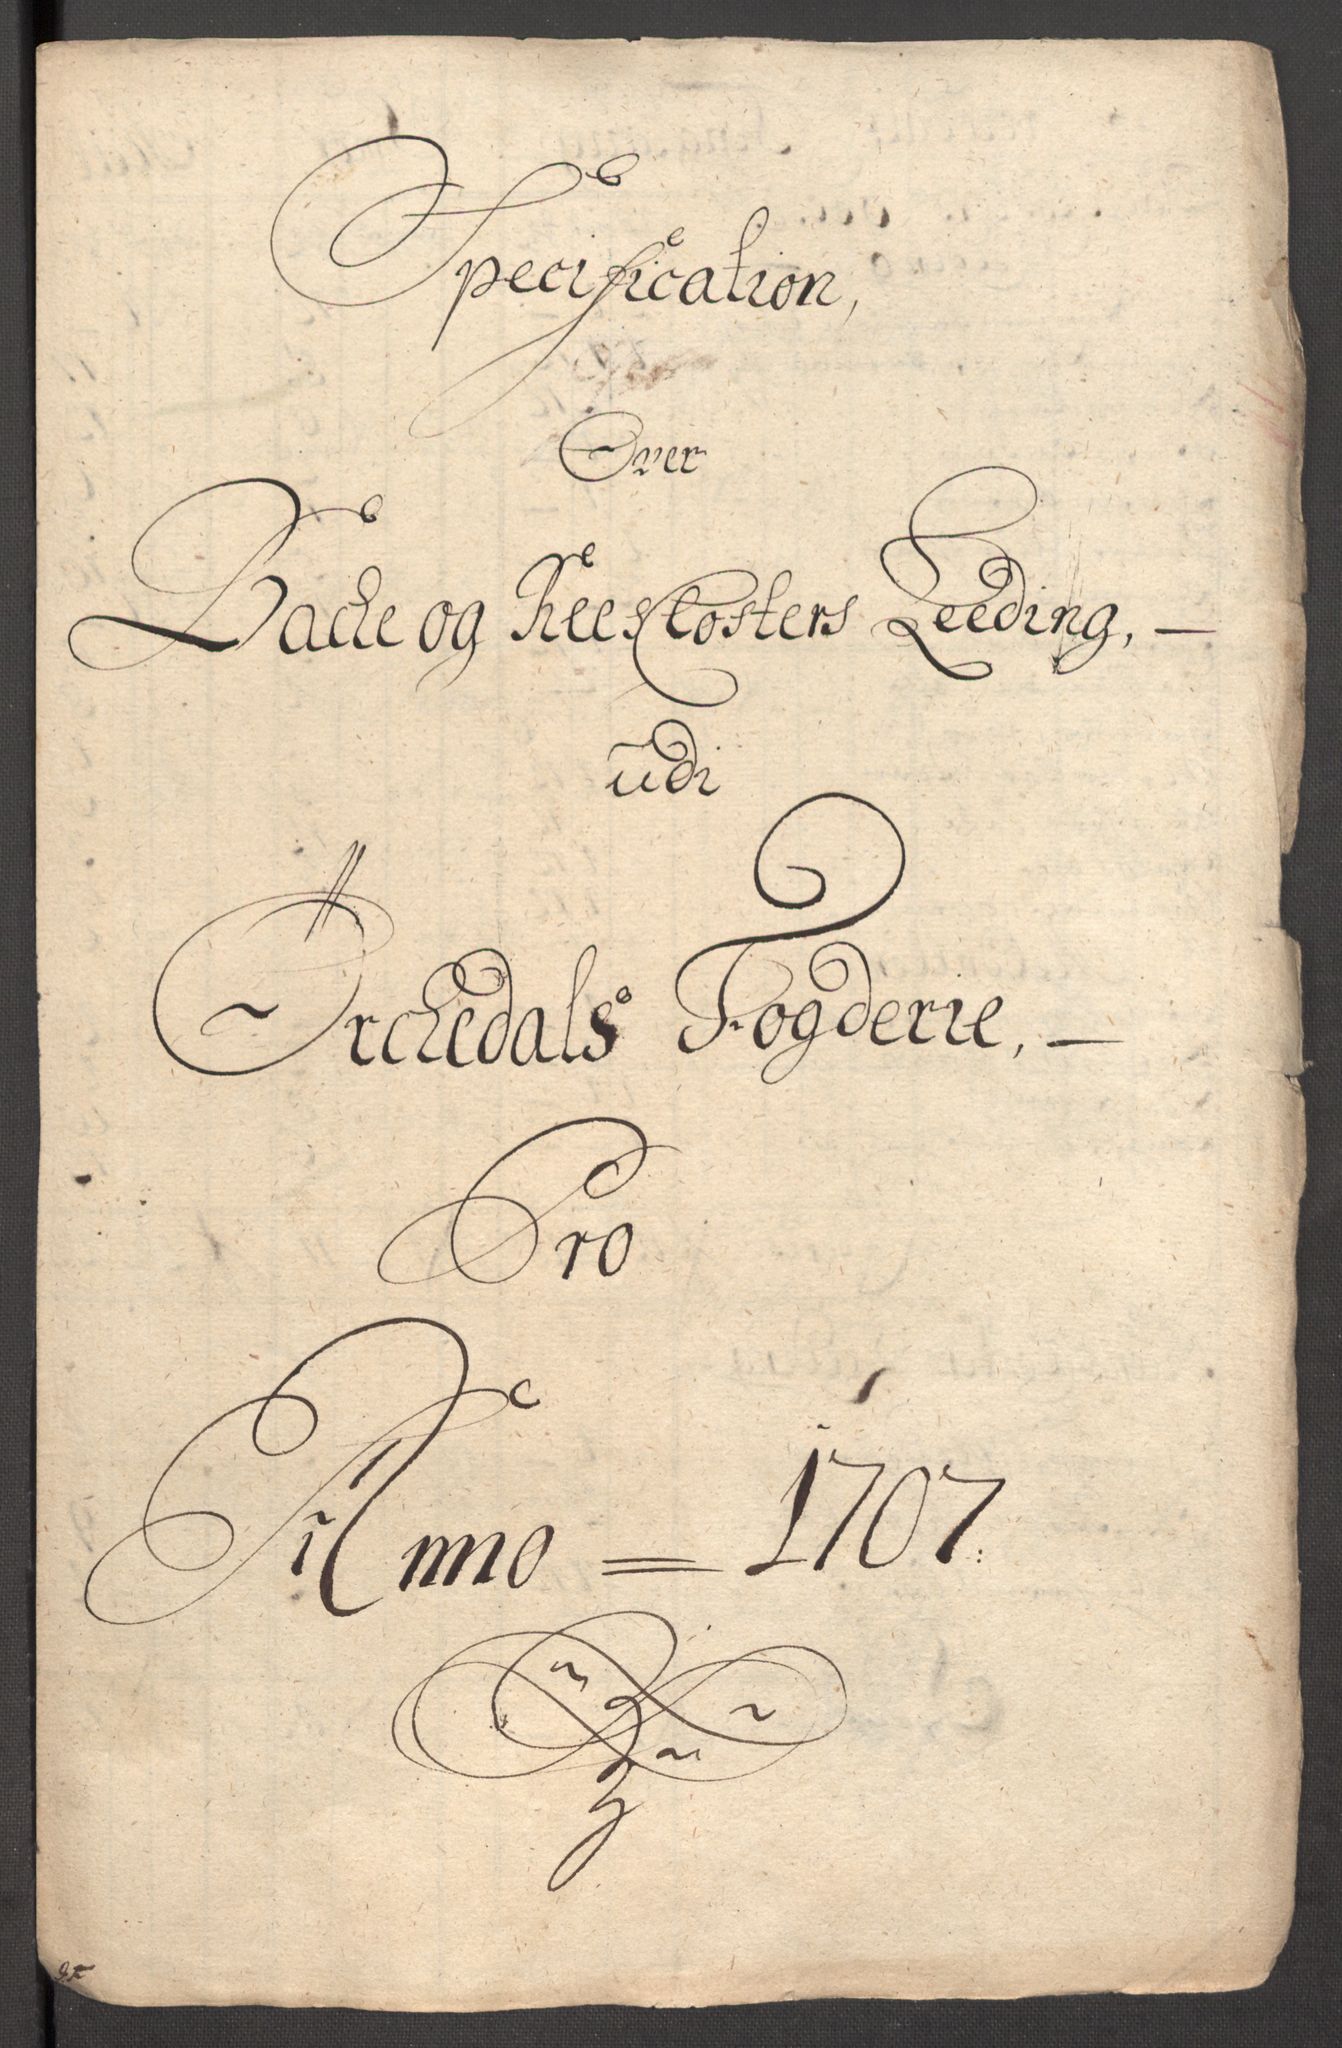 Specification,
Over
Backe og Rees Closters Leeding, —
udi
Orchedals Fogderie, —
Pro
Anno = 1707: